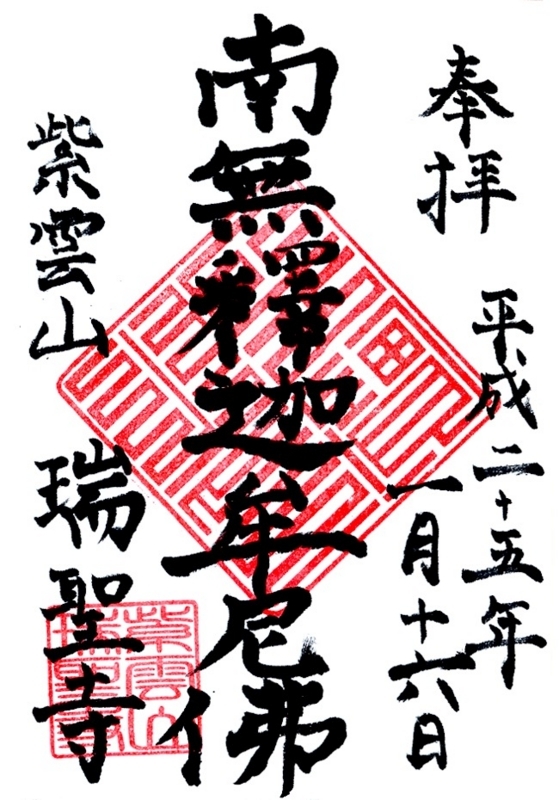 奉拝
平成二十五年
一月十六日
南無釋迦牟尼佛
紫雲山
瑞聖寺
紫雲山
瑞聖寺